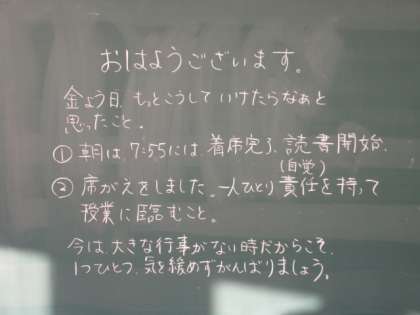 おはようございます。
金よう日、もっとこうして いけたらなぁと
思ったこと。
① 朝は、7:55には、着席完了、読書開始。
② 席がえをしました。一人ひとり 責任を持って
(自覚)
授業に臨むこと。
今は、大きな行事がない時だからこそ、
1つひとつ、気を緩めずがんばりましょう。